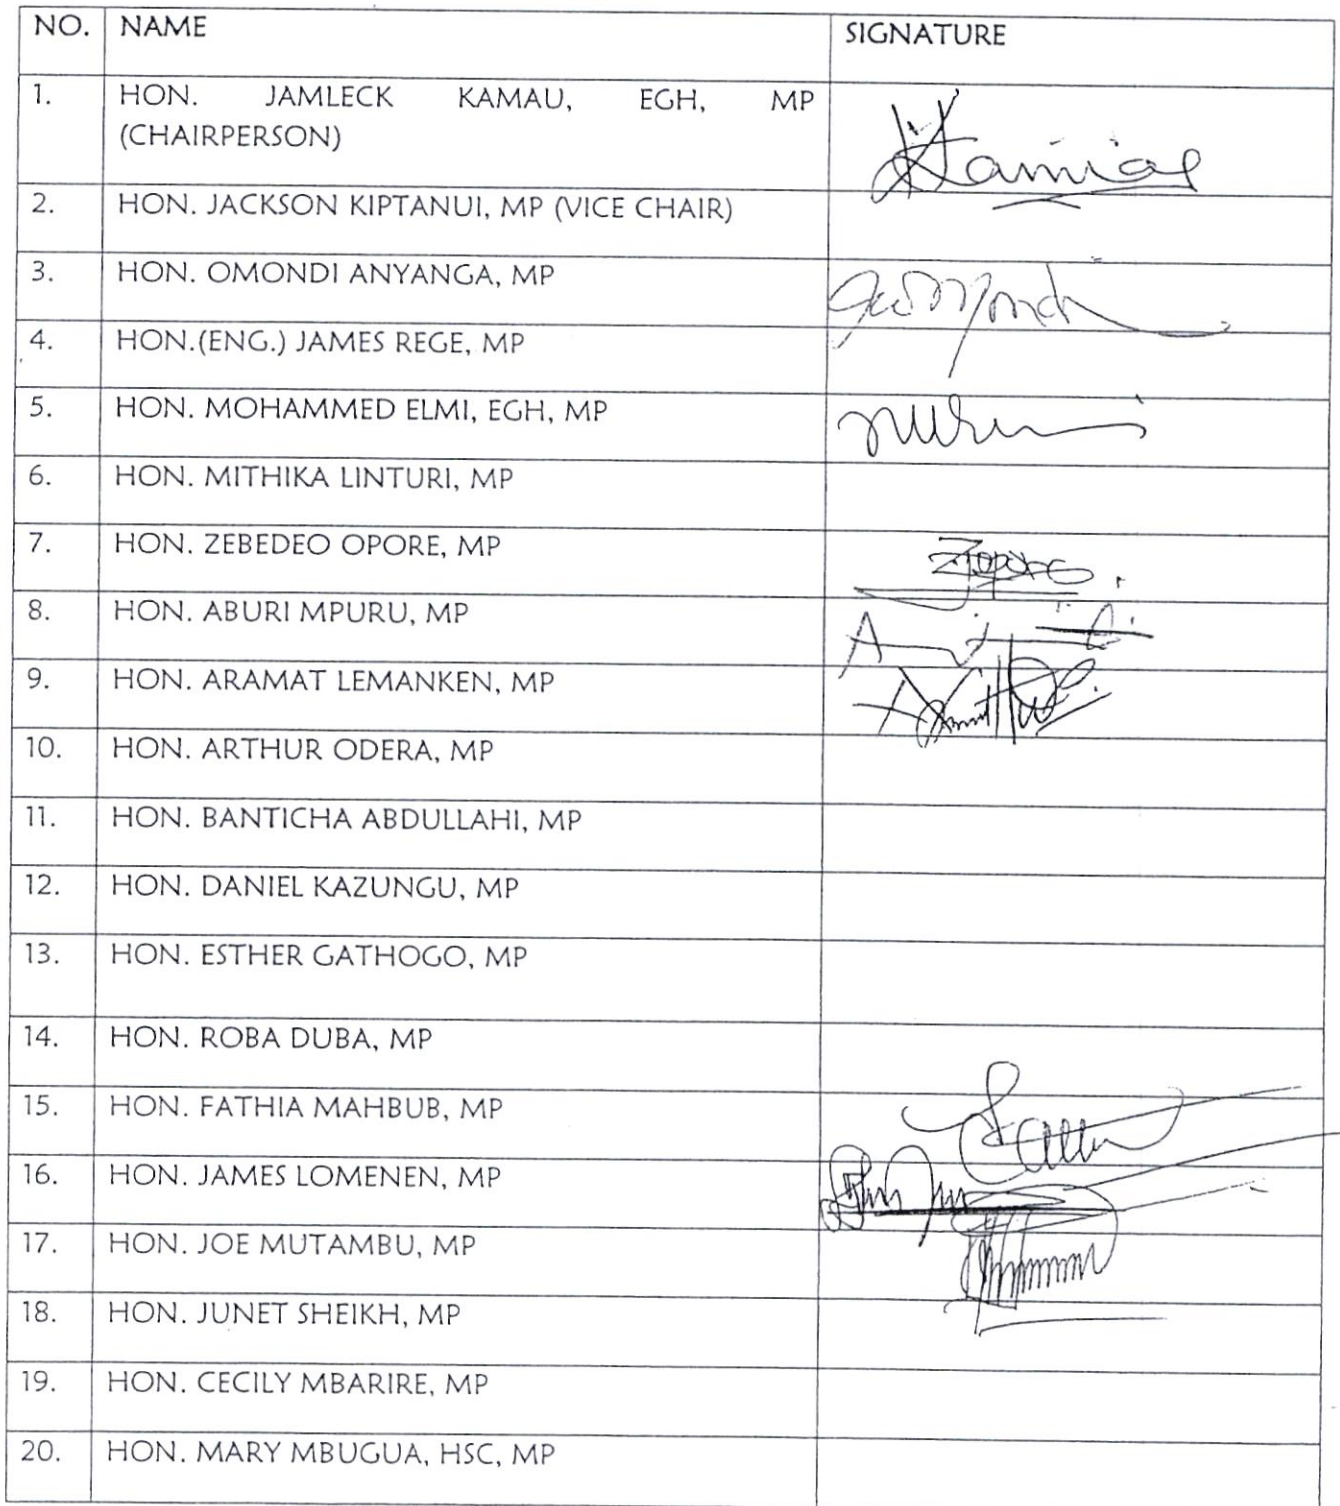 NO. NAME SIGNATURE
1. HON. JAMLECK KAMAU, EGH, MP
(CHAIRPERSON)
2. HON. JACKSON KIPTANUI, MP (VICE CHAIR)
3. HON. OMONDI ANYANGA, MP
4. HON.(ENG.) JAMES REGE, MP
5. HON. MOHAMMED ELMI, EGH, MP
6. HON. MITHIKA LINTURI, MP
7. HON. ZEBEDEO OPORE, MP
8. HON. ABURI MPURU, MP
9. HON. ARAMAT LEMANKEN, MP
10. HON. ARTHUR ODERA, MP
11. HON. BANTICHA ABDULLAHI, MP
12. HON. DANIEL KAZUNGU, MP
13. HON. ESTHER GATHOGO, MP
14. HON. ROBA DUBA, MP
15. HON. FATHIA MAHBUB, MP
16. HON. JAMES LOMENEN, MP
17. HON. JOE MUTAMBU, MP
18. HON. JUNET SHEIKH, MP
19. HON. CECILY MBARIRE, MP
20. HON. MARY MBUGUA, HSC, MP